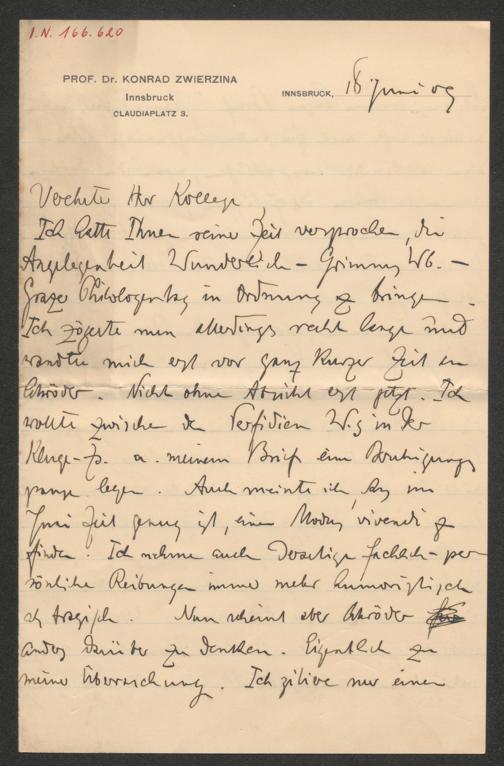 I.N. 166.620
PROF. Dr. KONRAD ZWIERZINA
Innsbruck
CLAUDIAPLATZ 3.
INNSBRUCK, 18. Juni 09
Verehrter Herr Kollege,
Ich hatte Ihnen seiner Zeit versprochen, die
Angelegenheit Wunderlich – Grimms Wb. –
Grazer Philologentag in Ordnung z bringen.
Ich zögerte nun allerdings recht lange und
wandte mich erst vor ganz kurzer Zeit an
Schröder. Nicht ohne Absicht erst jetzt. Ich
wollte zwischen den Perfidien W.s in der
Kluge-Zs. u. meinem Brief eine Beruhigungs
pause legen. Auch meinte ich, das im
Juni Zeit genug ist, einen Modus vivendi z
finden. Ich nehme auch derartige fachlich-per
sönliche Reibungen immer mehr humoristisch
als tragisch. Nun scheint aber Schröder
anders darüber zu denken. Eigentlich zu
meiner Überraschung. Ich zitire nur einen